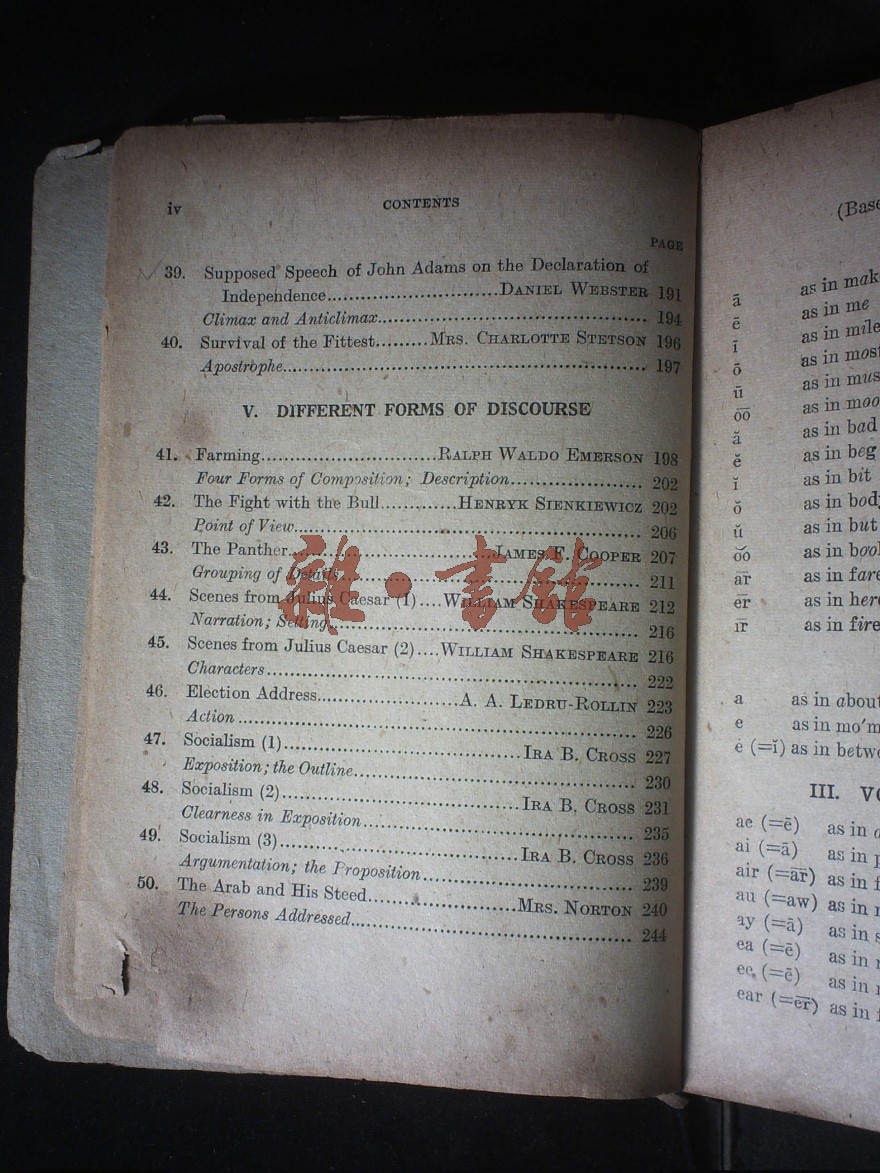 iv
CONTENTS
PAGE
39. Supposed Speech of John Adams on the Declaration of
Independence..............................DANIEL WEBSTER 191
Climax and Anticlimax................................................ 194
40. Survival of the Fittest.........MRS. CHARLOTTE STETSON 196
Apostrophe................................................................ 197
V. DIFFERENT FORMS OF DISCOURSE
41. Farming...............................RALPH WALDO EMERSON 198
Four Forms of Composition; Description....................... 202
42. The Fight with the Bull.............HENRYK SIENKIEWICZ 202
Point of View............................................................. 206
43. The Panther....................................JAMES F. COOPER 207
Grouping of Details..................................................... 211
44. Scenes from Julius Caesar (1)....WILLIAM SHAKESPEARE 212
Narration; Setting....................................................... 216
45. Scenes from Julius Caesar (2)....WILLIAM SHAKESPEARE 216
Characters................................................................. 222
46. Election Address.........................A. A. LEDRU-ROLLIN 223
Action ....................................................................... 226
47. Socialism (1)..........................................IRA B. CROSS 227
Exposition; the Outline................................................ 230
48. Socialism (2)..........................................IRA B. CROSS 231
Clearness in Exposition............................................... 235
49. Socialism (3)..........................................IRA B. CROSS 236
Argumentation; the Proposition..................................... 239
50. The Arab and His Steed..........................MRS. NORTON 240
The Persons Addressed................................................ 244
雜·書館
(Base
ā as in mak
ē as in me
ī as in mile
ō as in most
ū as in mus
o͞o as in moo
ă as in bad
ĕ as in beg
ĭ as in bit
ŏ as in body
ŭ as in but
o͝o as in bool
ār as in fare
ēr as in here
īr as in fire
a as in about
e as in mo'm
ė (=ĭ) as in betwe
III. VO
ae (=ē) as in
ai (=ā) as in p
air (=ār) as in f
au (=aw) as in
ay (=ā) as in s
ea (=ē) as in
ee (=ē) as in
ear (=ēr) as in